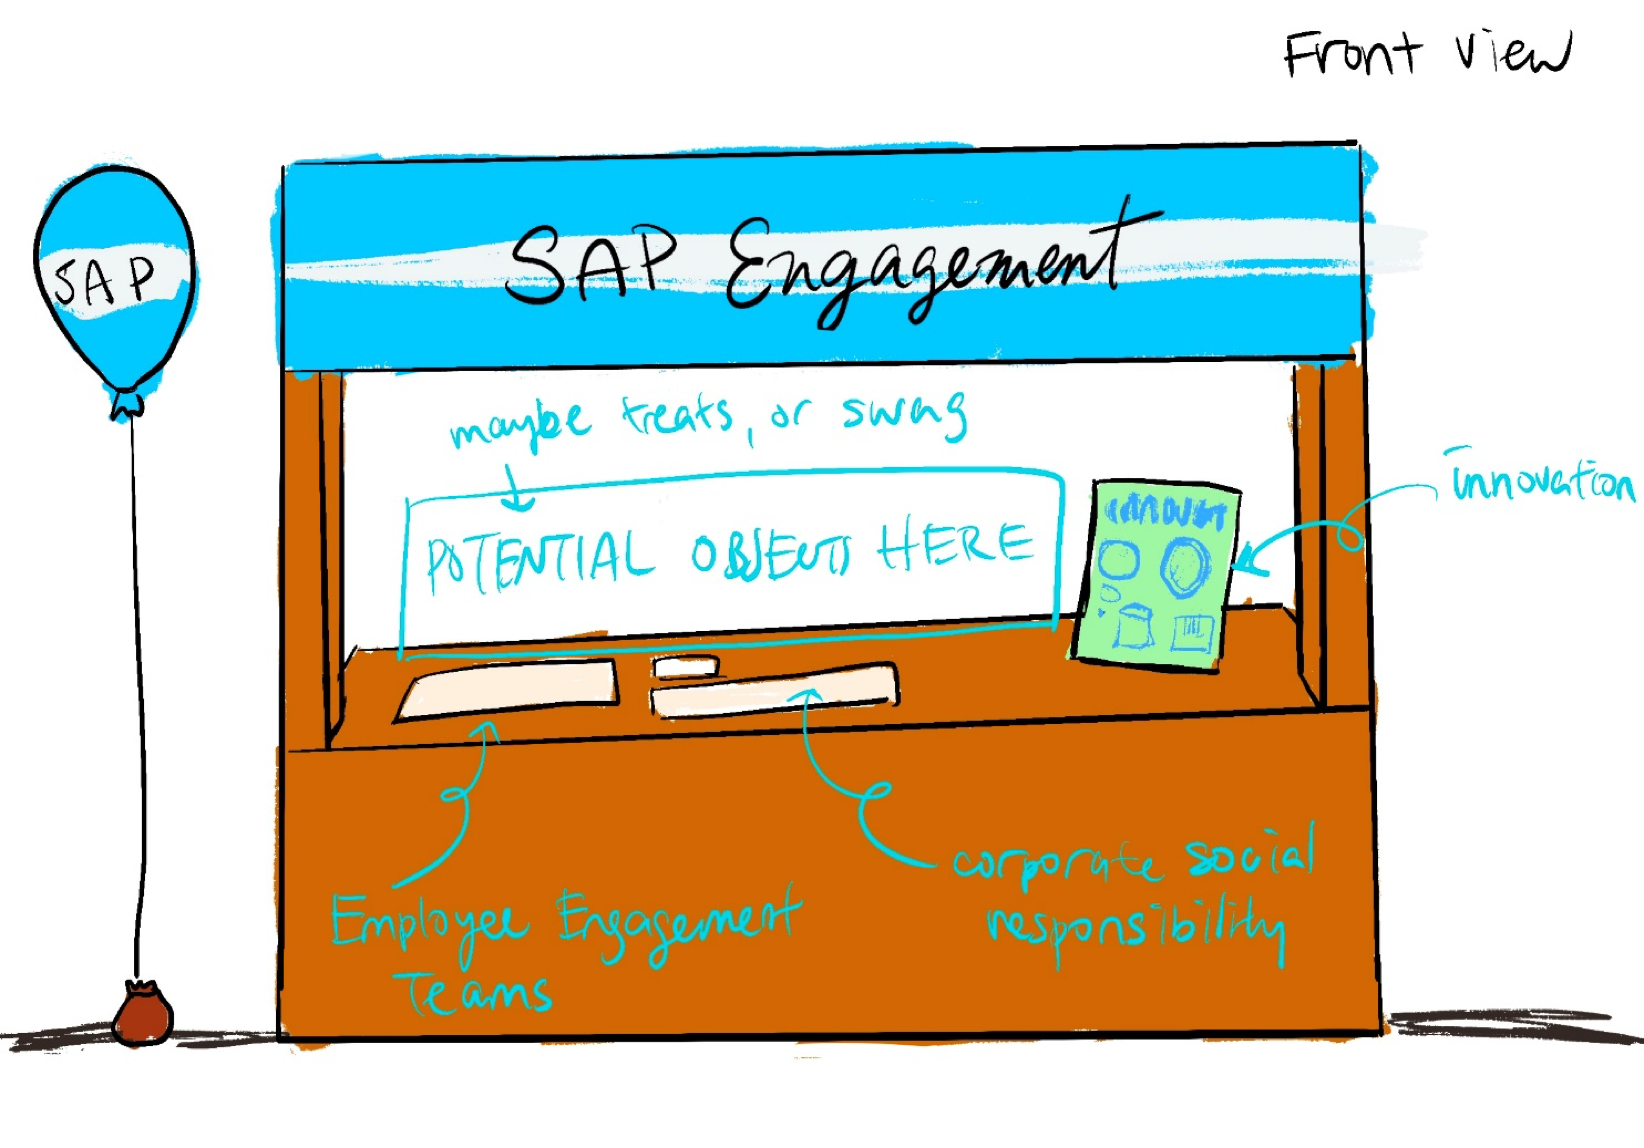 Front view
SAP
SAP Engagement
maybe treats, or swag
POTENTIAL OBJECTS HERE
innovation
Employee Engagement
Teams
corporate social
responsibility